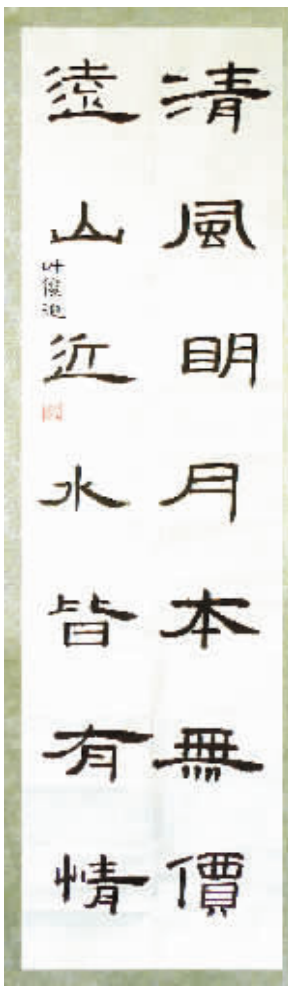 清風明月本無價
遠山近水皆有情
叶俊